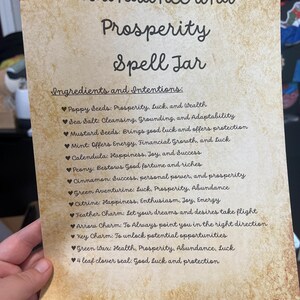 Abundance and
Prosperity
Spell Jar
Ingredients and Intentions:
♥ Poppy Seeds: Prosperity, Luck, and Wealth
♥ Sea Salt: Cleansing, Grounding, and Adaptability
♥ Mustard Seeds: Brings good luck and offers protection
♥ Mint: Offers Energy, Financial Growth, and Luck
♥ Calendula: Happiness, Joy, and Success
♥ Peony: Bestows Good fortune and riches
♥ Cinnamon: Success, personal power, and prosperity
♥ Green Aventurine: Luck, Prosperity, Abundance
♥ Citrine: Happiness, Enthusiasm, Joy, Energy
♥ Feather Charm: Let your dreams and desires take flight
♥ Arrow Charm: To Always point you in the right direction
♥ Key Charm: To unlock potential opportunities.
♥ Green Wax: Health, Prosperity, Abundance, Luck.
♥ 4 leaf clover seal: Good Luck and protection